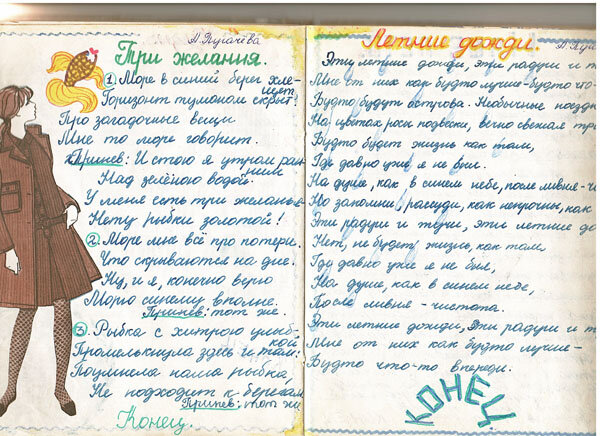 А.Пугачева
Три желания.
1 Море в синий берег хле-
щет.
Горизонт туманом скрыт.
Про загадочные вещи
Мне то море говорит.
Припев: И стою я утром ран-
ним
Над зелёною водой.
У меня есть три желанья
Нету рыбки золотой!
2. Море мне всё про потери.
Что скрываются на дне.
Ну, и я, конечно верю
Морю синему вполне.
Припев: тот же.
3. Рыбка с хитрою улыб-
кой
Промелькнула здесь и там.
Поумнела наша рыбка,
Не подходит к берегам
Припев: тот же
Конец.
Летние дожди.
А.Пуг
Эти летние дожди, эти радуги и т
Мне от них как будто лучше-будто что-
Будто будут острова. Необычные поездк
На цветах росы подвески, вечно свежая тр
Будто будет жизнь как там,
Где давно уже я не был.
На душе, как в синем небе, после ливня-ч
Но запомни, рассуди, как непрочны, как
Эти радуги и тучи, эти летние до
Нет, не будет жизнь, как там,
Где давно уже я не был,
На душе, как в синем небе,
После ливня - чистота.
Эти летние дожди, Эти радуги и т
Мне от них как будто лучше-
Будто что-то впереди.
КОНЕЦ